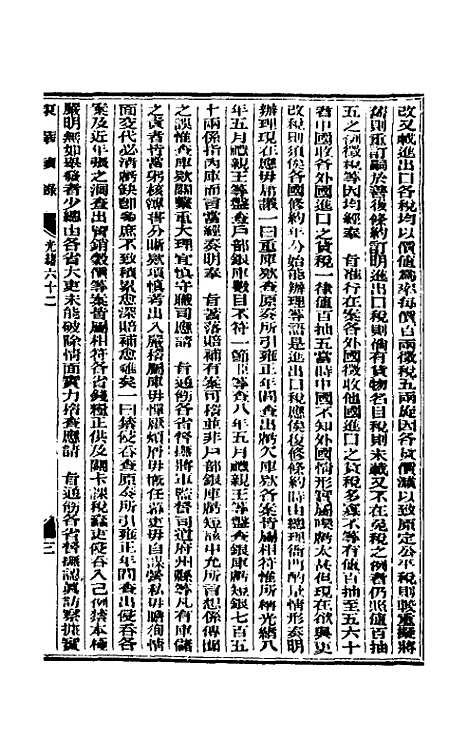 改又載進出口各稅均以價值為率每價百兩徵稅五兩旋因各貨價減以致原定公平稅則較重擬將
舊則重訂嗣於善後條約訂明進出口稅則倘有貨物名目稅則未載又不在免稅之例者仍照值百抽
五之例徵稅等因均經奉 旨准行在案各外國徵收他國進口之貨稅多寡不等有值百抽至五六十
者中國收各外國進口之貨稅一律值百抽五當時中國不知外國情形實屬喫虧太甚但現在欲與更
改稅則須俟各國修約年分始能辦理等語是進出口稅應俟後修條約時由總理衙門酌量情形奏明
辦理現在應毋庸議一曰重庫款查原奏所引雍正年間查出虧欠庫款各案皆屬相符惟所稱光緒八
年五月禮親王等盤查戶部銀庫數目不符一節臣等查八年五月禮親王等盤查銀庫虧短銀七百五
十兩係指內庫而言當經奏明奉 旨著落賠補有案可稽並非戶部銀庫虧短該中允所言想係傳聞
之誤惟查庫款關繫重大理宜慎守職司應請 旨通飭各省督撫將軍監督司道府州縣等凡有庫儲
之責者皆當躬核簿籍分晰款項慎著出入嚴稽屬庫毋憚厭煩毋委任幕吏毋自謀營私毋瞻徇情
面交代必清虧缺即參庶不致積累愈深賠補愈難矣一曰禁侵吞查原奏所引雍正年間查出侵吞各
案及近年張之洞查出買銷穀價等案皆屬相符各省錢糧正供及關卡課稅蠹吏侵吞入己例禁本極
嚴明無如舉發者少總由各省大吏未能破除情面實力稽查應請 旨通飭各省督撫認真訪察據實
東華續錄 光緒六十二 三